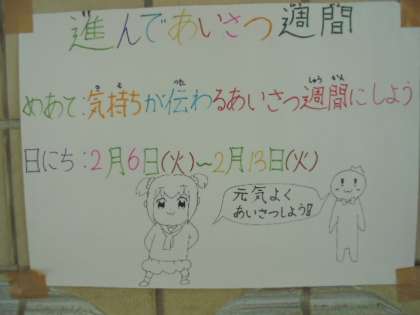 進んであいさつ週間
めあて:気持ちが伝わるあいさつ週間にしよう
日にち:2月6日(火)~2月13日(火)
元気よく
あいさつしよう!